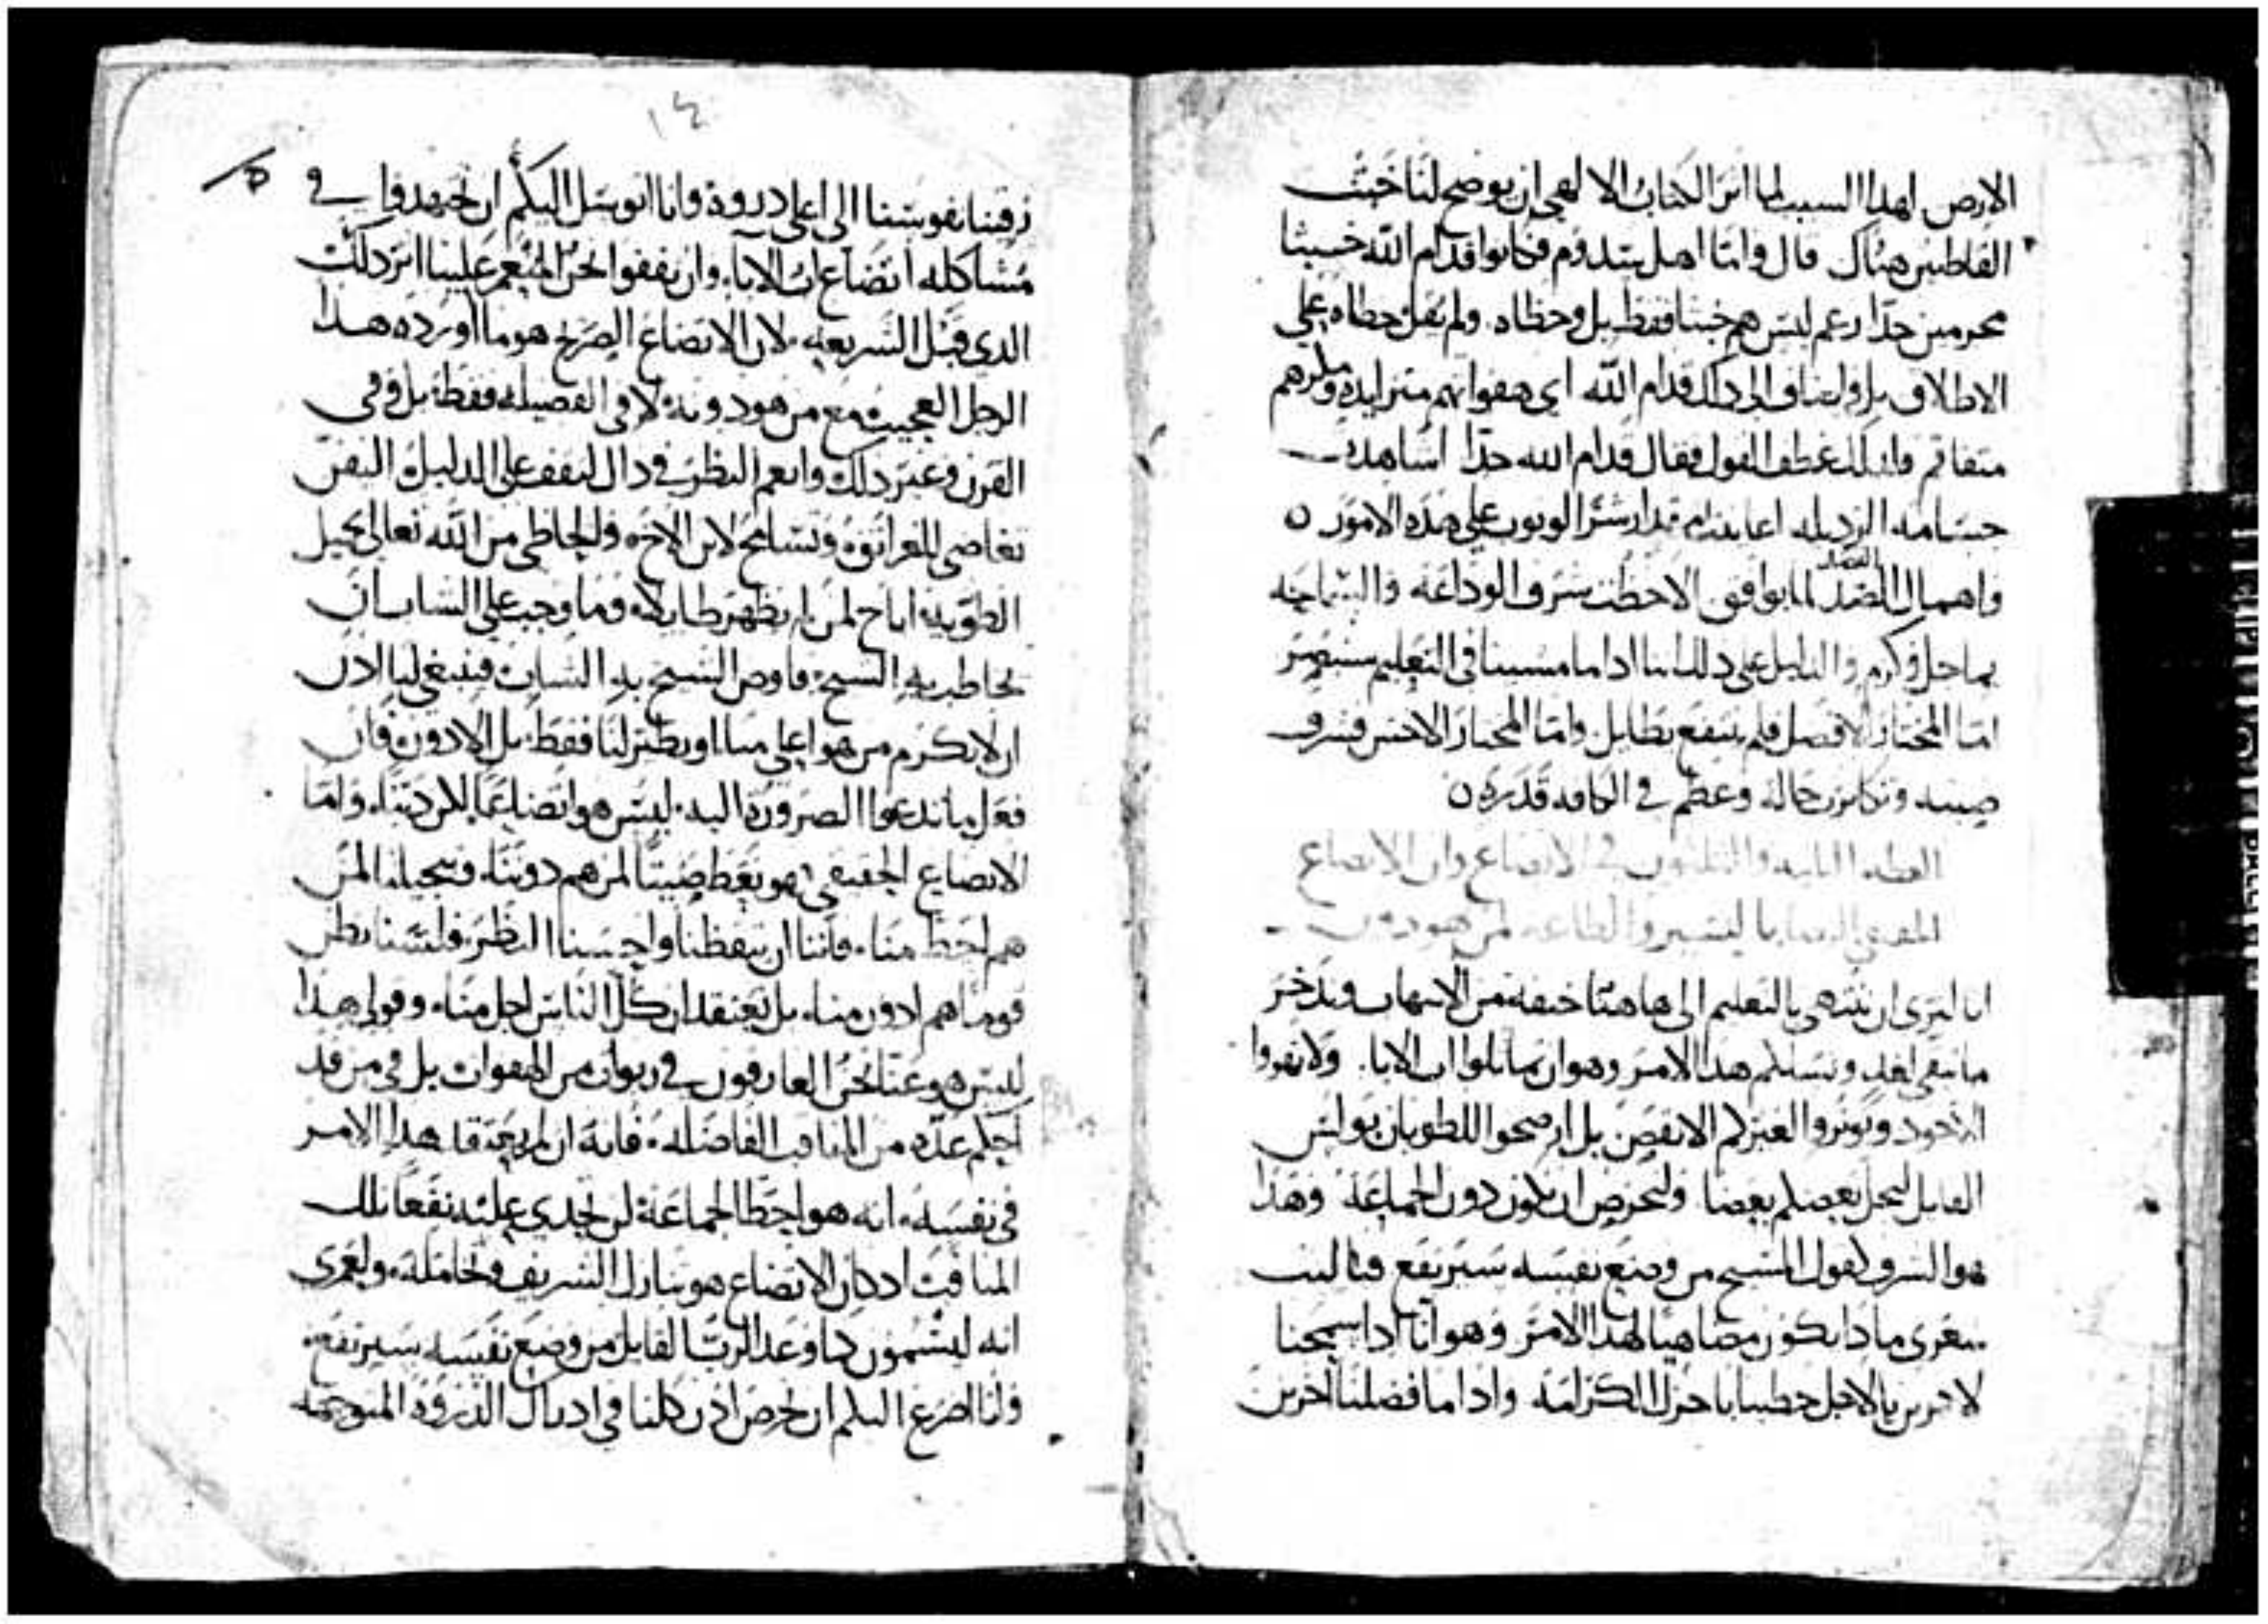 الارض لهذا السبب لما اثر الكتاب الالهي ان يوضح لنا خبث
القاطنين هناك قال واما اهل سدوم فكانوا قدام الله خبيثا
مجرمين جدا زعم ليس هم خبثا فقط بل وخطاه ولم يقل خطاه علي
الاطلاق بل واضاف الى ذلك قدام الله اي هفواتهم متزايده ومكرهم
متفاقم ولذلك عطف القول فقال قدام الله جدا اشاهدت
جسامه الرذيله اعاينت مقدار شر الوثوب علي هذه الامور ن
واهمال القصد لما يوافق الاحظت شرف الوداعه والسماجه
بماجل وكرم والدليل على ذلك اننا اذا ما مشينا في التعليم سنبصر
اما المختار الافضل فلم ينتفع بطايل واما المختار الاخس فشرف
صيته وتكاثرت حاله وعظم في الكافه قدره ن
العظه الثانيه والثلثون في الاتضاع وان الاتضاع
الحقيقي انما يا ليسير والطاعه لمن هو دون
انا ليرى ان ننتهي بالتعليم الى هاهنا خيفة من الاسهاب وندخر
ما تبقى لغد ونسلكم هذا الامر وهو ان تماثلوا اب الابا ولا تهووا
الاجود وتوثروا لغيركم الانقص بل ارضخوا للطوبان بولس
القايل ليجل بعضكم بعضا ولنحرص ان نكون دون الجماعة وهذا
هو الشرف لقول المسيح من وضع نفسه سيرتفع فيا ليت
شعري ماذا يكون مضاهيا لهذا الامر وهو اننا اذا سمحنا
لاخرين بالاجل حظينا باجزل الكرامه واذا ما فضلنا اخرين
١٤
زقينا نفوسنا الى اعلى دروة وانا اتوسل اليكم ان تجتهدوا في
مشاكله اتضاع اب الابا وان نقفوا نحن المنعم علينا اثر ذلك
الدي قبل الشريعه لان الاتضاع الصريح هو ما اورده هذا
الرجل العجيب مع من هو دونه لا في الفضيله فقط بل وفى
القرن وغير ذلك وانعم النظر في ذاك لتقف على الدليل اليقين
تغاضى للغرانوه وتسامح لابن الاخ والحاظى من الله تعالى بجميل
الطوبه اباح لمن لم يظهر طايله وما وجب على الشاب ان
يخاطب به الشيخ فاوض الشيخ به الشاب فينبغي لنا الان
ان لا نكرم من هو اعلى منا او نظير لنا فقط بل الادون فان
فعل ما تدعوا الضرورة اليه ليس هو اتضاعا للارذتنا واما
الاتضاع الحقيقي هو نغظ صيتنا لمن هم دوننا وتبجيلنا لمن
هم احط منا فاننا ان تيقظنا واحسنا النظر فلسنا نظن
قوما هم ادون منا بل نعتقد ان كل الناس اجل منا وقولى هذا
ليس هو عنا نحن الغارقون في ربوات من الهفوات بل في من قد
احكم عده من المناقب الفاضله فانه ان لم يعتقد هذا الامر
في نفسه انه هو احط الجماعة لن تجدى عليه نفعا تلك
المناقب اذ كان الاتضاع هو تنازل الشريف وتخامله ولعمرى
انه ليسمون كما وعد الرب القايل من وضع نفسه سيرتفع
وانا اضرع اليكم ان نحرص اذن كلنا في ادراك الذروة المتوجهه